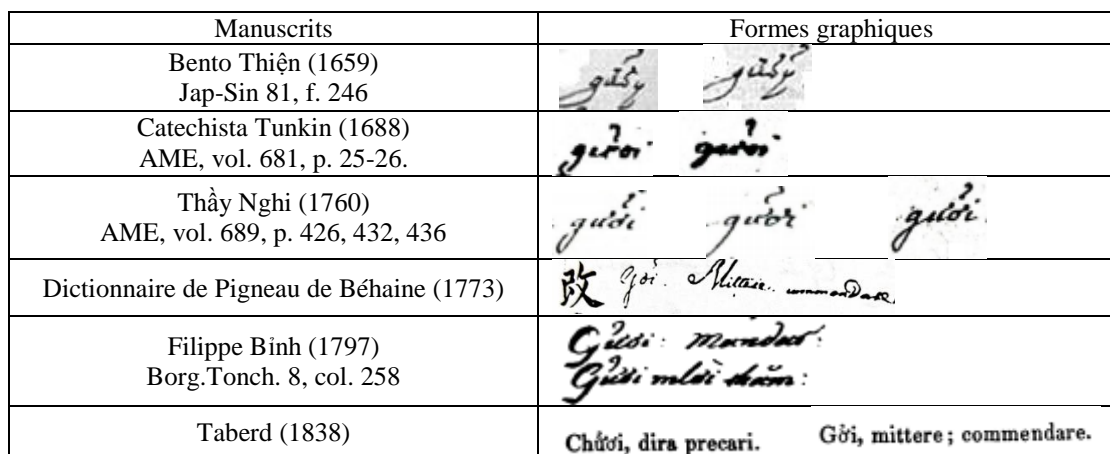 Manuscrits Formes graphiques
Bento Thiện (1659)
Jap-Sin 81, f. 246
gưẩy gưẩy
Catechista Tunkin (1688)
AME, vol. 681, p. 25-26.
gưởi gưởi
Thầy Nghi (1760)
AME, vol. 689, p. 426, 432, 436
gưởi gưởi gưởi
Dictionnaire de Pigneau de Béhaine (1773)
改 Gởi. Mittere. commendare.
Filippe Bỉnh (1797)
Borg.Tonch. 8, col. 258
Gưởi: mandar:
Gưởi mlời thăm:
Taberd (1838)
Chưởi, dira precari. Gởi, mittere; commendare.